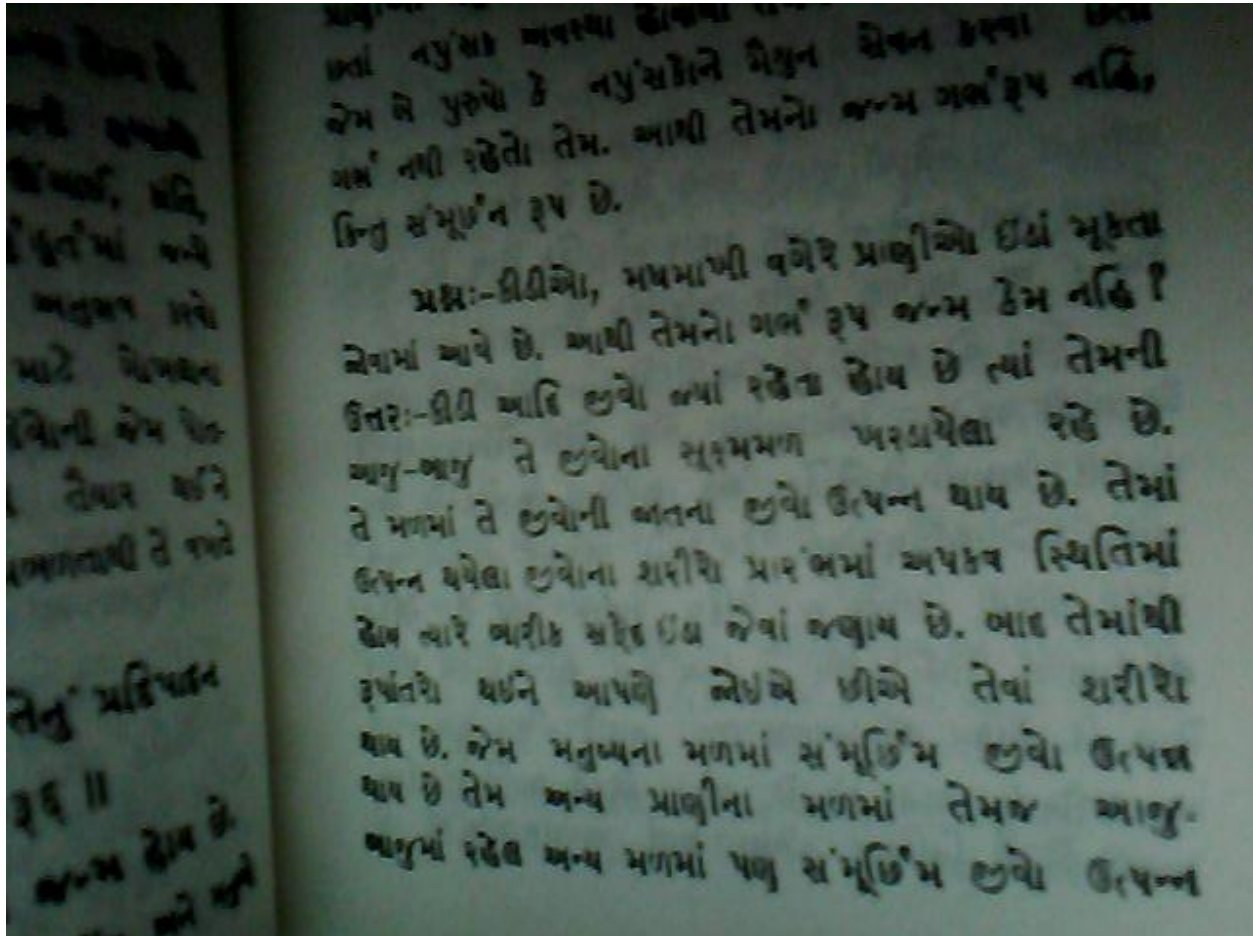 માટે
તૈયાર થઈને
તેનું પ્રતિપાદન
૩૬ ॥
જન્મ હોય છે.
છતાં નપુંસક અવસ્થા હોવાથી
જેમ બે પુરુષો કે નપુંસકોને મૈથુન સેવન કરવા છતાં
ગર્ભ નથી રહેતો તેમ. આથી તેમનો જન્મ ગર્ભરૂપ નહિ,
કિન્તુ સંમૂર્છન રૂપ છે.
પ્રશ્નઃ-કીડીઓ, મધમાખી વગેરે પ્રાણીઓ ઈંડાં મૂકતા
જોવામાં આવે છે. આથી તેમનો ગર્ભ રૂપ જન્મ કેમ નહિ ?
ઉત્તરઃ-કીડી આદિ જીવો જ્યાં રહેતા હોય છે ત્યાં તેમની
આજુ-બાજુ તે જીવોના સૂક્ષ્મમળ ખરડાયેલા રહે છે.
તે મળમાં તે જીવોની જાતના જીવો ઉત્પન્ન થાય છે. તેમાં
ઉત્પન્ન થયેલા જીવોના શરીરો પ્રારંભમાં અપકવ સ્થિતિમાં
હોય ત્યારે બારીક સફેદ ઈંડા જેવાં જણાય છે. બાદ તેમાંથી
રૂપાંતરો થઈને આપણે જોઈએ છીએ તેવાં શરીરો
થાય છે. જેમ મનુષ્યના મળમાં સંમૂર્છિમ જીવો ઉત્પન્ન
થાય છે તેમ અન્ય પ્રાણીના મળમાં તેમજ આજુ-
બાજુમાં રહેલ અન્ય મળમાં પણ સંમૂર્છિમ જીવો ઉત્પન્ન